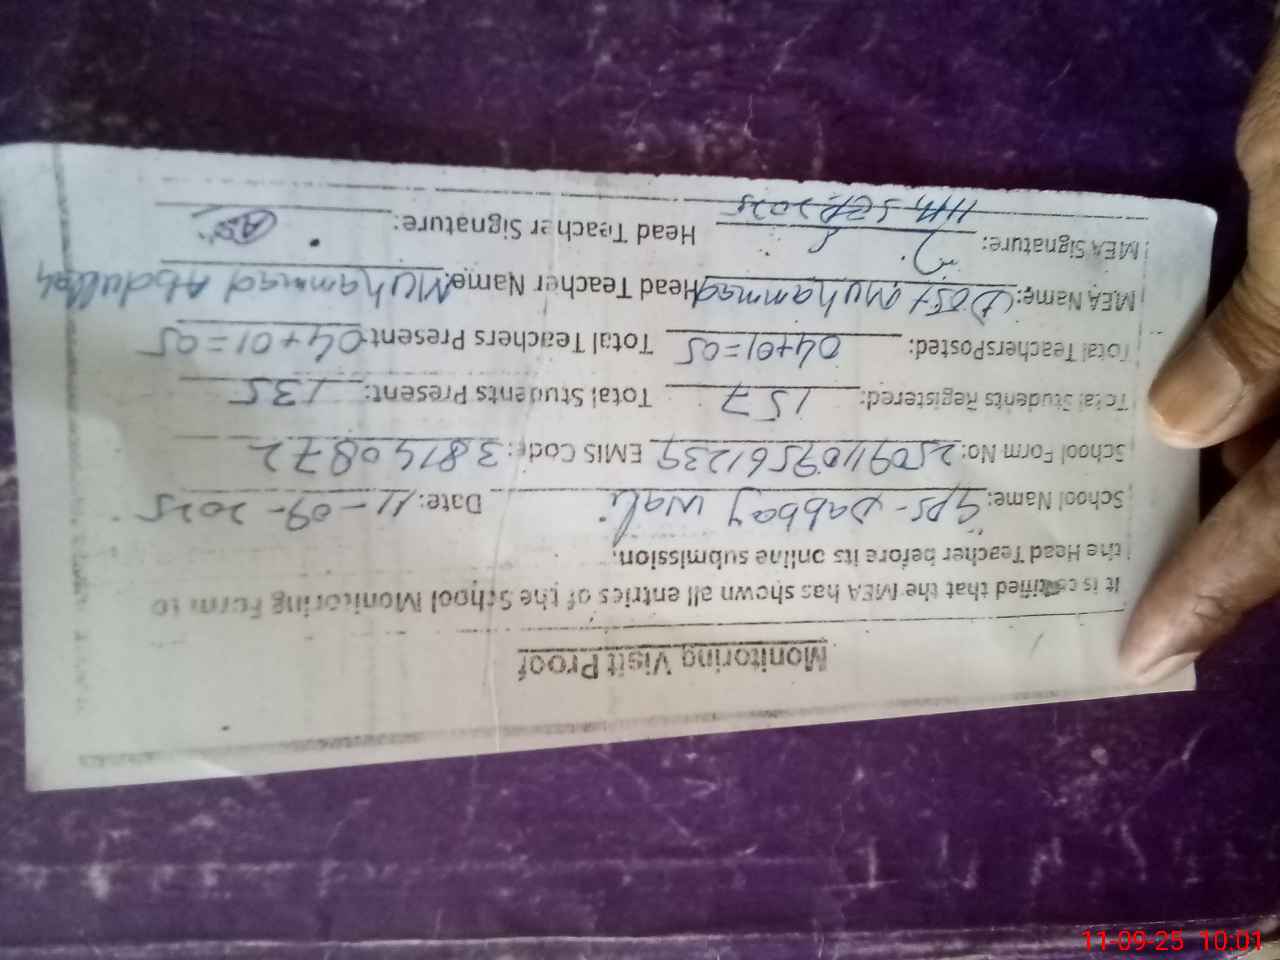 Monitoring Visit Proof
It is certified that the MEA has shown all entries of the School Monitoring Form to
the Head Teacher before its online submission.
School Name: GPS - Dabbay wali Date: 11-09-2025
School Form No: 25091109561239 EMIS Code: 38140872
Total Students Registered: 157 Total Students Present: 135
Total Teachers Posted: 04+01=05 Total Teachers Present 04+01=05
MEA Name: Dost Muhammad Head Teacher Name: Muhammad Abdullah
MEA Signature: Head Teacher Signature:
11th, SEP, 2025
11-09-25 10:01